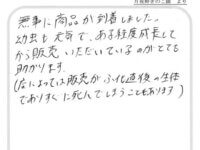 無事に商品が到着しました。
幼虫も元気で、ある程度成長して
から販売いただいているのがとても
助かります。
(なによっては販売がふ化直後の生体
でありすぐに死んでしまうこともあります)